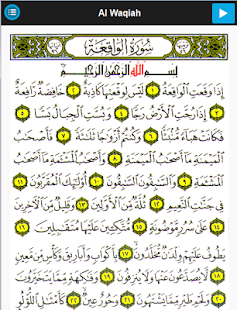 Al Waqiah
سُورَةُ الْوَاقِعَةِ
بِسْمِ اللهِ الرَّحْمٰنِ الرَّحِيْمِ
إِذَا وَقَعَتِ الْوَاقِعَةُ ۝١ لَيْسَ لِوَقْعَتِهَا كَاذِبَةٌ ۝٢ خَافِضَةٌ رَّافِعَةٌ
۝٣ إِذَا رُجَّتِ الْأَرْضُ رَجًّا ۝٤ وَبُسَّتِ الْجِبَالُ بَسًّا ۝٥
فَكَانَتْ هَبَاءً مُّنْبَثًّا ۝٦ وَكُنْتُمْ أَزْوَاجًا ثَلَاثَةً ۝٧ فَأَصْحَابُ
الْمَيْمَنَةِ مَا أَصْحَابُ الْمَيْمَنَةِ ۝٨ وَأَصْحَابُ الْمَشْئَمَةِ مَا أَصْحَابُ
الْمَشْئَمَةِ ۝٩ وَالسَّابِقُونَ السَّابِقُونَ ۝١٠ أُولَٰئِكَ الْمُقَرَّبُونَ ۝١١
فِي جَنَّاتِ النَّعِيمِ ۝١٢ ثُلَّةٌ مِّنَ الْأَوَّلِينَ ۝١٣ وَقَلِيلٌ مِّنَ الْآخِرِينَ
۝١٤ عَلَىٰ سُرُرٍ مَّوْضُونَةٍ ۝١٥ مُّتَّكِئِينَ عَلَيْهَا مُتَقَابِلِينَ ۝١٦
يَطُوفُ عَلَيْهِمْ وِلْدَانٌ مُّخَلَّدُونَ ۝١٧ بِأَكْوَابٍ وَأَبَارِيقَ وَكَأْسٍ مِّنْ مَّعِينٍ
۝١٨ لَا يُصَدَّعُونَ عَنْهَا وَلَا يُنْزِفُونَ ۝١٩ وَفَاكِهَةٍ مِّمَّا يَتَخَيَّرُونَ
۝٢٠ وَلَحْمِ طَيْرٍ مِّمَّا يَشْتَهُونَ ۝٢١ وَحُورٌ عِينٌ ۝٢٢ كَأَمْثَالِ اللُّؤْلُؤِ